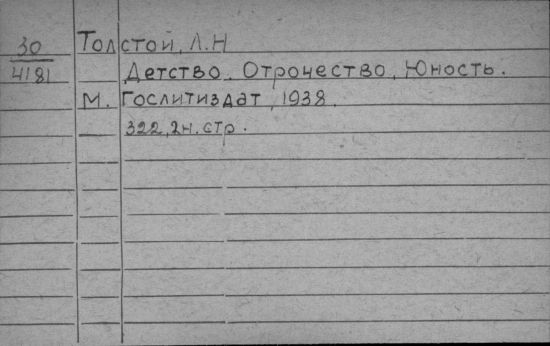 30 Толстой, Л.Н
4181 Детство. Отрочество. Юность.
М. Гослитиздат, 1938.
322, 2н. стр.